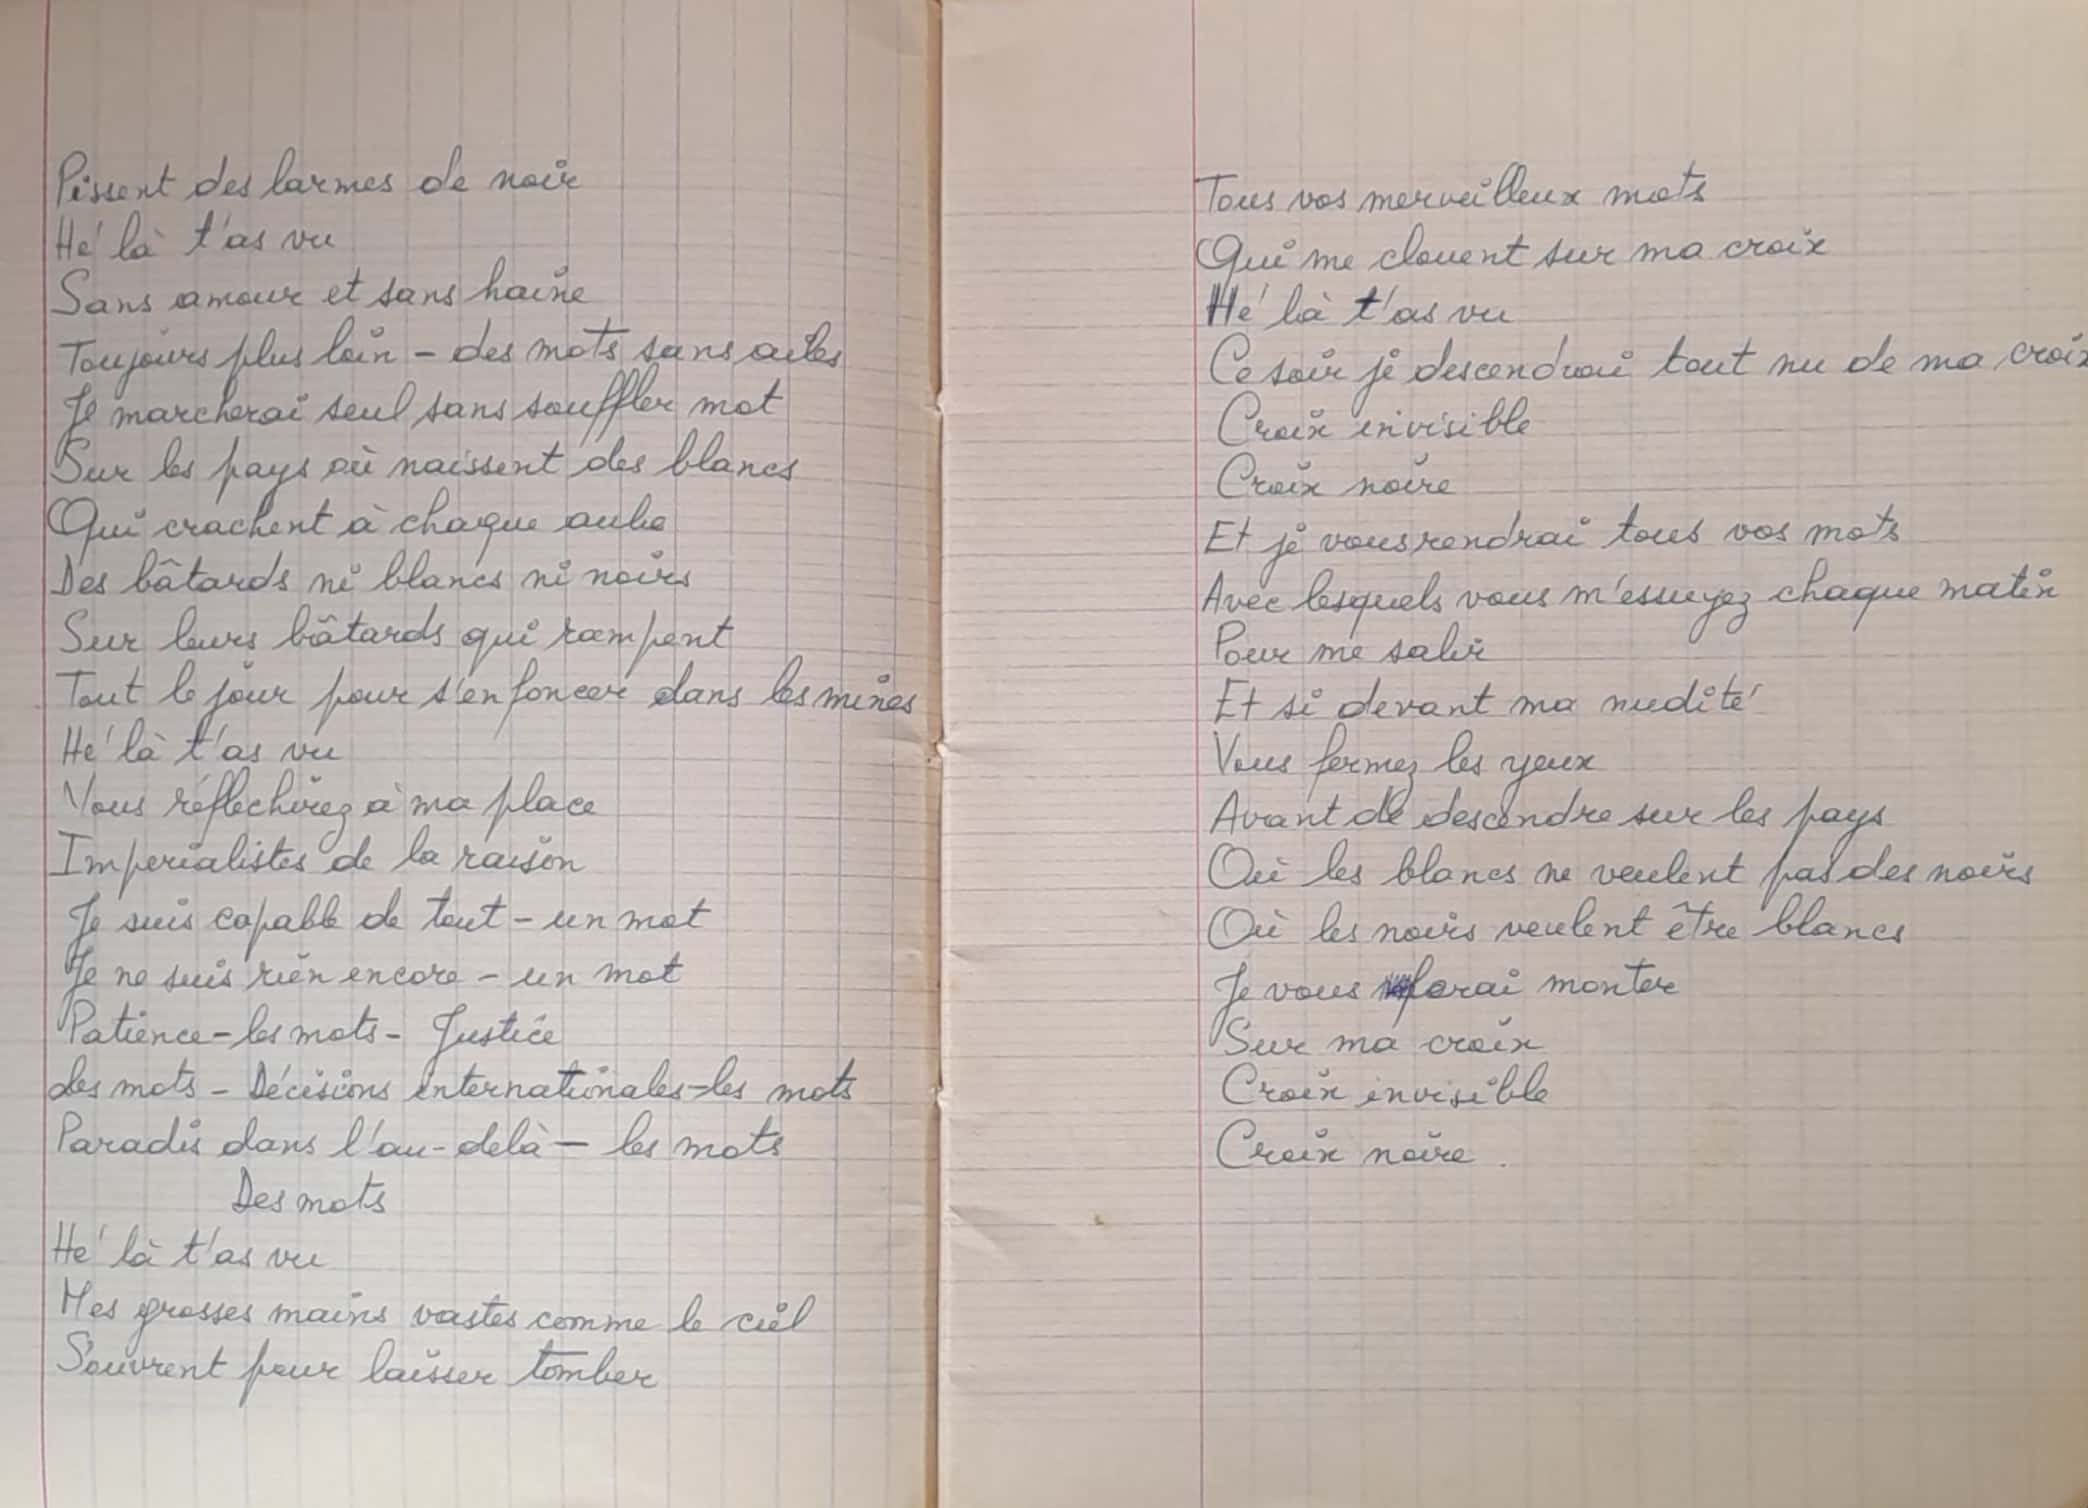 Pissent des larmes de noir
Hé là t'as vu
Sans amour et sans haine
Toujours plus loin - des mots sans ailes
Je marcherai seul sans souffler mot
Sur les pays où naissent des blancs
Qui crachent à chaque aube
Des bâtards ni blancs ni noirs
Sur leurs bâtards qui rampent
Tout le jour pour s'enfoncer dans les mines
Hé là t'as vu
Vous réflechirez à ma place
Imperialistes de la raison
Je suis capable de tout - un mot
Je ne suis rien encore - un mot
Patience - les mots - Justice
Les mots - Décisions internationales - les mots
Paradis dans l'au-delà - les mots
Des mots
Hé là t'as vu
Mes grosses mains vastes comme le ciel
S'ouvrent pour laisser tomber
Tous vos merveilleux mots
Qui me clouent sur ma croix
Hé là t'as vu
Ce soir je descendrai tout nu de ma croix
Croix invisible
Croix noire
Et je vous rendrai tous vos mots
Avec lesquels vous m'essuyez chaque matin
Pour me salir
Et si devant ma nudité
Vous fermez les yeux
Avant de descendre sur les pays
Où les blancs ne veulent pas des noirs
Où les noirs veulent être blancs
Je vous ferai monter
Sur ma croix
Croix invisible
Croix noire.